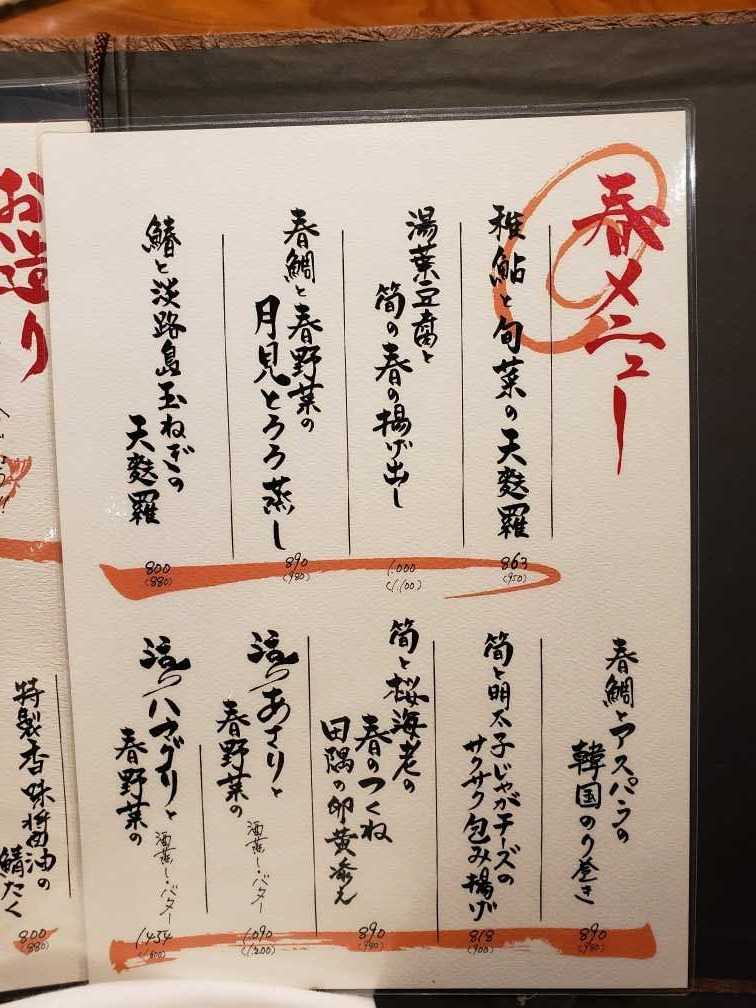 春メニュー
稚鮎と旬菜の天麩羅
863
(950)
湯葉豆腐と
筍の春の揚げ出し
1.000
(1.100)
春鯛と春野菜の
月見とろろ蒸し
890
(980)
鰆と淡路島玉ねぎの
天麩羅
800
(880)
春鯛とアスパラの
韓国のり巻き
890
(980)
筍と明太子じゃがチーズの
サクサク包み揚げ
818
(900)
筍と桜海老の
春のつくね
田隅の卵黄添え
890
(980)
活〆あさりと
春野菜の
酒蒸し・バター
1.090
(1.200)
活〆ハマグリと
春野菜の
酒蒸し・バター
1.454
(1.600)
お造り
特製香味醤油の
鯖たく
800
(880)